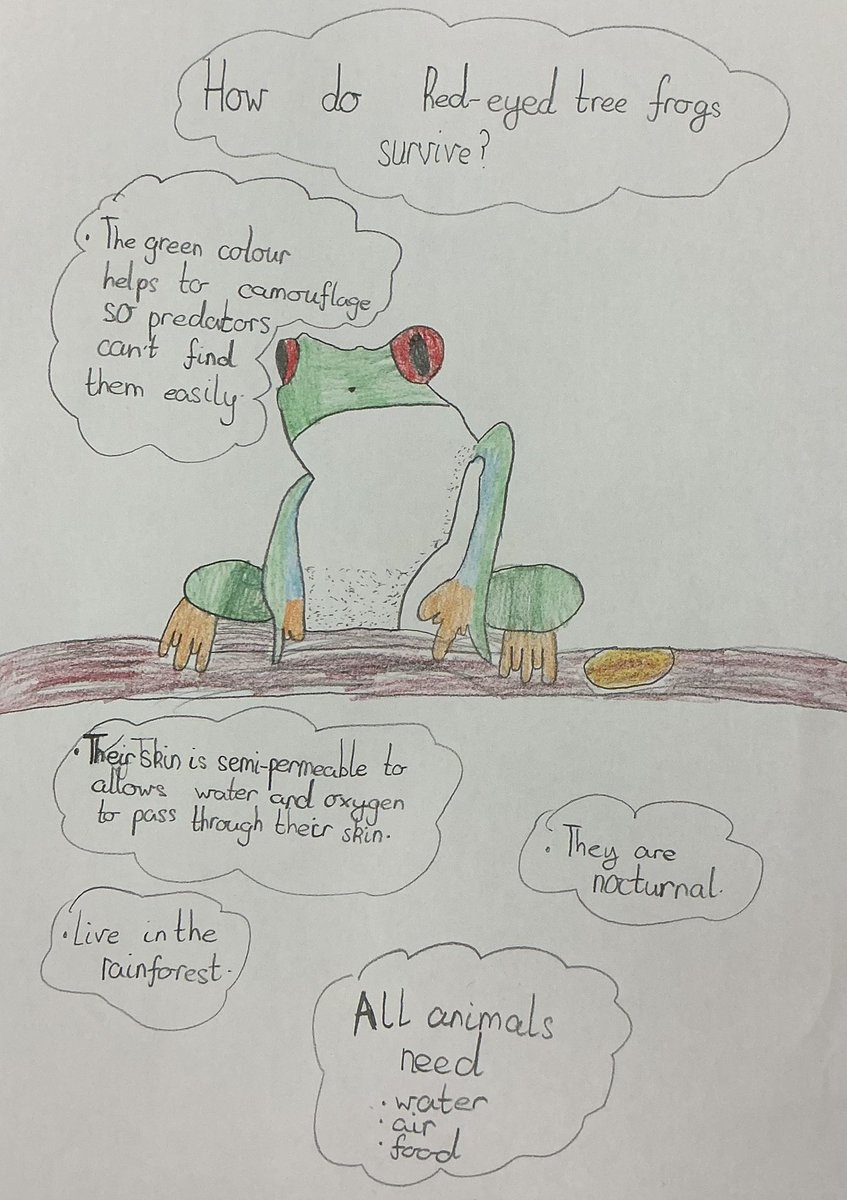 How do Red-eyed tree frogs
survive?
· The green colour
helps to camouflage
so predators
can't find
them easily.
· Their skin is semi-permeable to
allows water and oxygen
to pass through their skin.
· They are
nocturnal.
· Live in the
rainforest.
All animals
need
· water
· air
· food